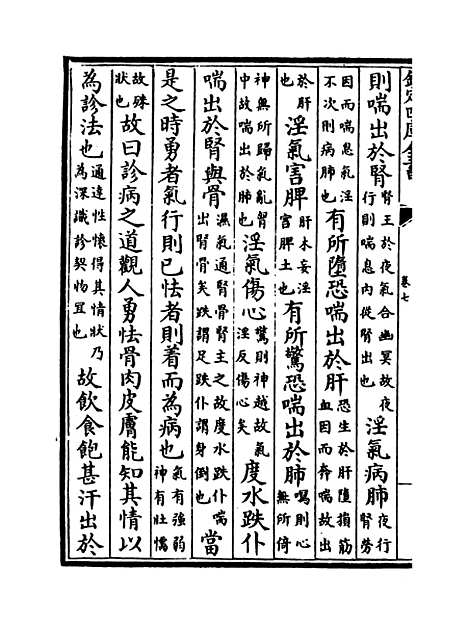 欽定四庫全書
卷七
則喘出於腎腎王於夜氣合幽冥故夜行則喘息内從腎出也淫氣病肺夜行腎勞
因而喘息氣淫不次則病肺也有所墮恐喘出於肝恐生於肝墮損筋血因而奔喘故出
於肝也淫氣害脾肝木妄淫害脾土也有所驚恐喘出於肺驚則心無所倚
神無所歸氣亂胷中故喘出於肺也淫氣傷心驚則神越故氣淫反傷心矣度水跌仆
喘出於腎與骨濕氣通腎骨腎主之故度水跌仆喘出腎骨矣跌謂足跌仆謂身倒也當
是之時勇者氣行則已怯者則着而為病也氣有強弱神有壯懦
故殊狀也故曰診病之道觀人勇怯骨肉皮膚能知其情以
為診法也通達性懷得其情狀乃為深識診契物宜也故飲食飽甚汗出於